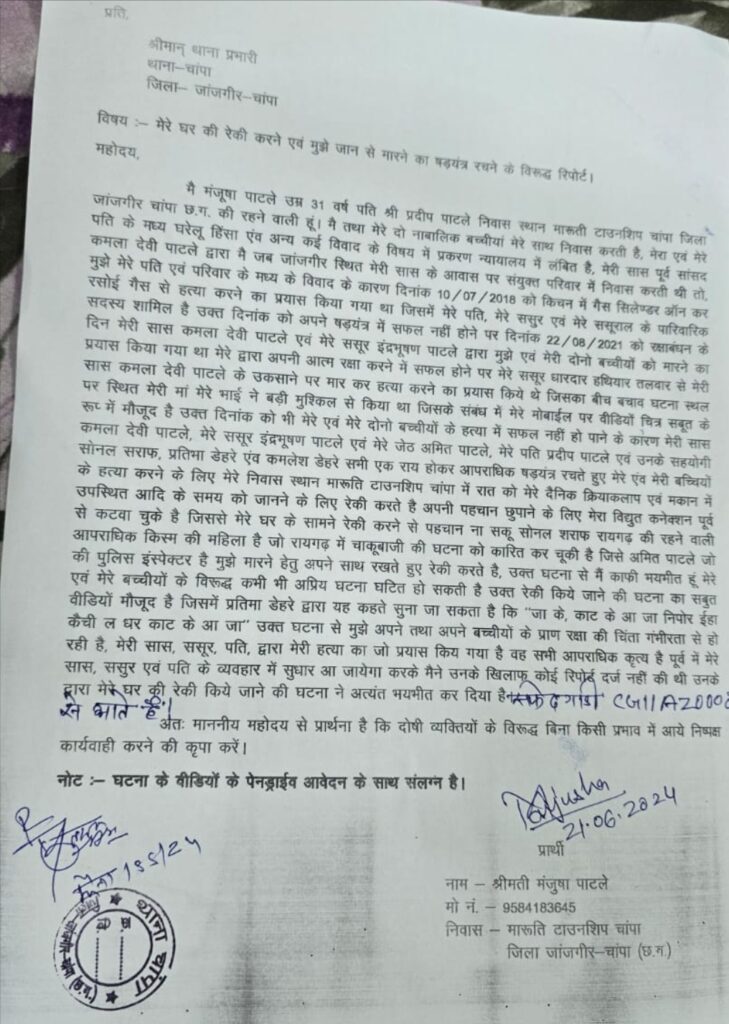 प्रति,
श्रीमान् थाना प्रभारी
थाना–चांपा
जिला– जांजगीर–चांपा
विषय :– मेरे घर की रेकी करने एवं मुझे जान से मारने का षड़यंत्र रचने के विरूद्ध रिपोर्ट।
महोदय,
मै मंजूषा पाटले उम्र 31 वर्ष पति श्री प्रदीप पाटले निवास स्थान मारूती टाउनशिप चांपा जिला
जांजगीर चांपा छ.ग. की रहने वाली हूं। मै तथा मेरे दो नाबालिक बच्चीयां मेरे साथ निवास करती है, मेरा एवं मेरे
पति के मध्य घरेलू हिंसा एंव अन्य कई विवाद के विषय में प्रकरण न्यायालय में लंबित है, मेरी सास पूर्व सांसद
कमला देवी पाटले द्वारा मै जब जांजगीर स्थित मेरी सास के आवास पर संयुक्त परिवार में निवास करती थी तो,
मुझे मेरे पति एवं परिवार के मध्य के विवाद के कारण दिनांक 10/07/2018 को किचन में गैस सिलेण्डर ऑन कर
रसोई गैस से हत्या करने का प्रयास किया गया था जिसमें मेरे पति, मेरे ससुर एवं मेरे ससूराल के पारिवारिक
सदस्य शामिल है उक्त दिनांक को अपने षड़यंत्र में सफल नहीं होने पर दिनांक 22/08/2021 को रक्षाबंधन के
दिन मेरी सास कमला देवी पाटले एवं मेरे ससूर इंद्रभूषण पाटले द्वारा मुझे एवं मेरी दोनो बच्चीयों को मारने का
प्रयास किया गया था मेरे द्वारा अपनी आत्म रक्षा करने में सफल होने पर मेरे ससूर धारदार हथियार तलवार से मेरी
सास कमला देवी पाटले के उकसाने पर मार कर हत्या करने का प्रयास किये थे जिसका बीच बचाव घटना स्थल
पर स्थित मेरी मां मेरे भाई ने बड़ी मुश्किल से किया था जिसके संबंध में मेरे मोबाईल पर वीडियों चित्र सबूत के
रूप में मौजूद है उक्त दिनांक को भी मेरे एवं मेरे दोनो बच्चीयों के हत्या में सफल नहीं हो पाने के कारण मेरी सास
कमला देवी पाटले, मेरे ससूर इंद्रभूषण पाटले एवं मेरे जेठ अमित पाटले, मेरे पति प्रदीप पाटले एवं उनके सहयोगी
सोनल सराफ, प्रतिमा डेहरे एंव कमलेश डेहरे सभी एक राय होकर आपराधिक षड़यंत्र रचते हुए मेरे एंव मेरी बच्चियों
के हत्या करने के लिए मेरे निवास स्थान मारूति टाउनशिप चांपा में रात को मेरे दैनिक क्रियाकलाप एवं मकान में
उपस्थित आदि के समय को जानने के लिए रेकी करते है अपनी पहचान छुपाने के लिए मेरा विद्युत कनेक्शन पूर्व
से कटवा चुके है जिससे मेरे घर के सामने रेकी करने से पहचान ना सकू सोनल शराफ रायगढ़ की रहने वाली
आपराधिक किस्म की महिला है जो रायगढ़ में चाकूबाजी की घटना को कारित कर चूकी है जिसे अमित पाटले जो
की पुलिस इंस्पेक्टर है मुझे मारने हेतु अपने साथ रखते हुए रेकी करते है, उक्त घटना से मैं काफी भयमीत हूं मेरे
एवं मेरे बच्चीयों के विरूद्ध कभी भी अप्रिय घटना घटित हो सकती है उक्त रेकी किये जाने की घटना का सबुत
वीडियों मौजूद है जिसमें प्रतिमा डेहरे द्वारा यह कहते सुना जा सकता है कि "जा के, काट के आ जा निपोर ईहा
कैची ल धर काट के आ जा" उक्त घटना से मुझे अपने तथा अपने बच्चीयों के प्राण रक्षा की चिंता गंभीरता से हो
रही है, मेरी सास, ससूर, पति, द्वारा मेरी हत्या का जो प्रयास किय गया है वह सभी आपराधिक कृत्य है पूर्व में मेरे
सास, ससुर एवं पति के व्यवहार में सुधार आ जायेगा करके मैने उनके खिलाफ कोई रिपोर्ट दर्ज नहीं की थी उनके
द्वारा मेरे घर की रेकी किये जाने की घटना ने अत्यंत भयमीत कर दिया है सफेद गाडी CG11AZ0008
से आते हैं।
अतः माननीय महोदय से प्रार्थना है कि दोषी व्यक्तियों के विरूद्ध बिना किसी प्रभाव में आये निष्पक्ष
कार्यवाही करने की कृपा करें।
नोट :– घटना के वीडियों के पेनड्राईव आवेदन के साथ संलग्न है।
21.06.2024
प्रार्थी
195/24
नाम – श्रीमती मंजुषा पाटले
मो नं. – 9584183645
निवास – मारूति टाउनशिप चांपा
जिला जांजगीर–चांपा (छ.ग.)
थाना चांपा